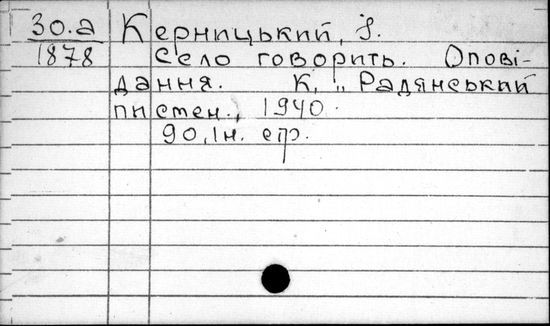 30.а
1878
Керницький, І.
Село говорить. Опові-
дання. К, „Радянський
писмен., 1940.
90,1н. стр.